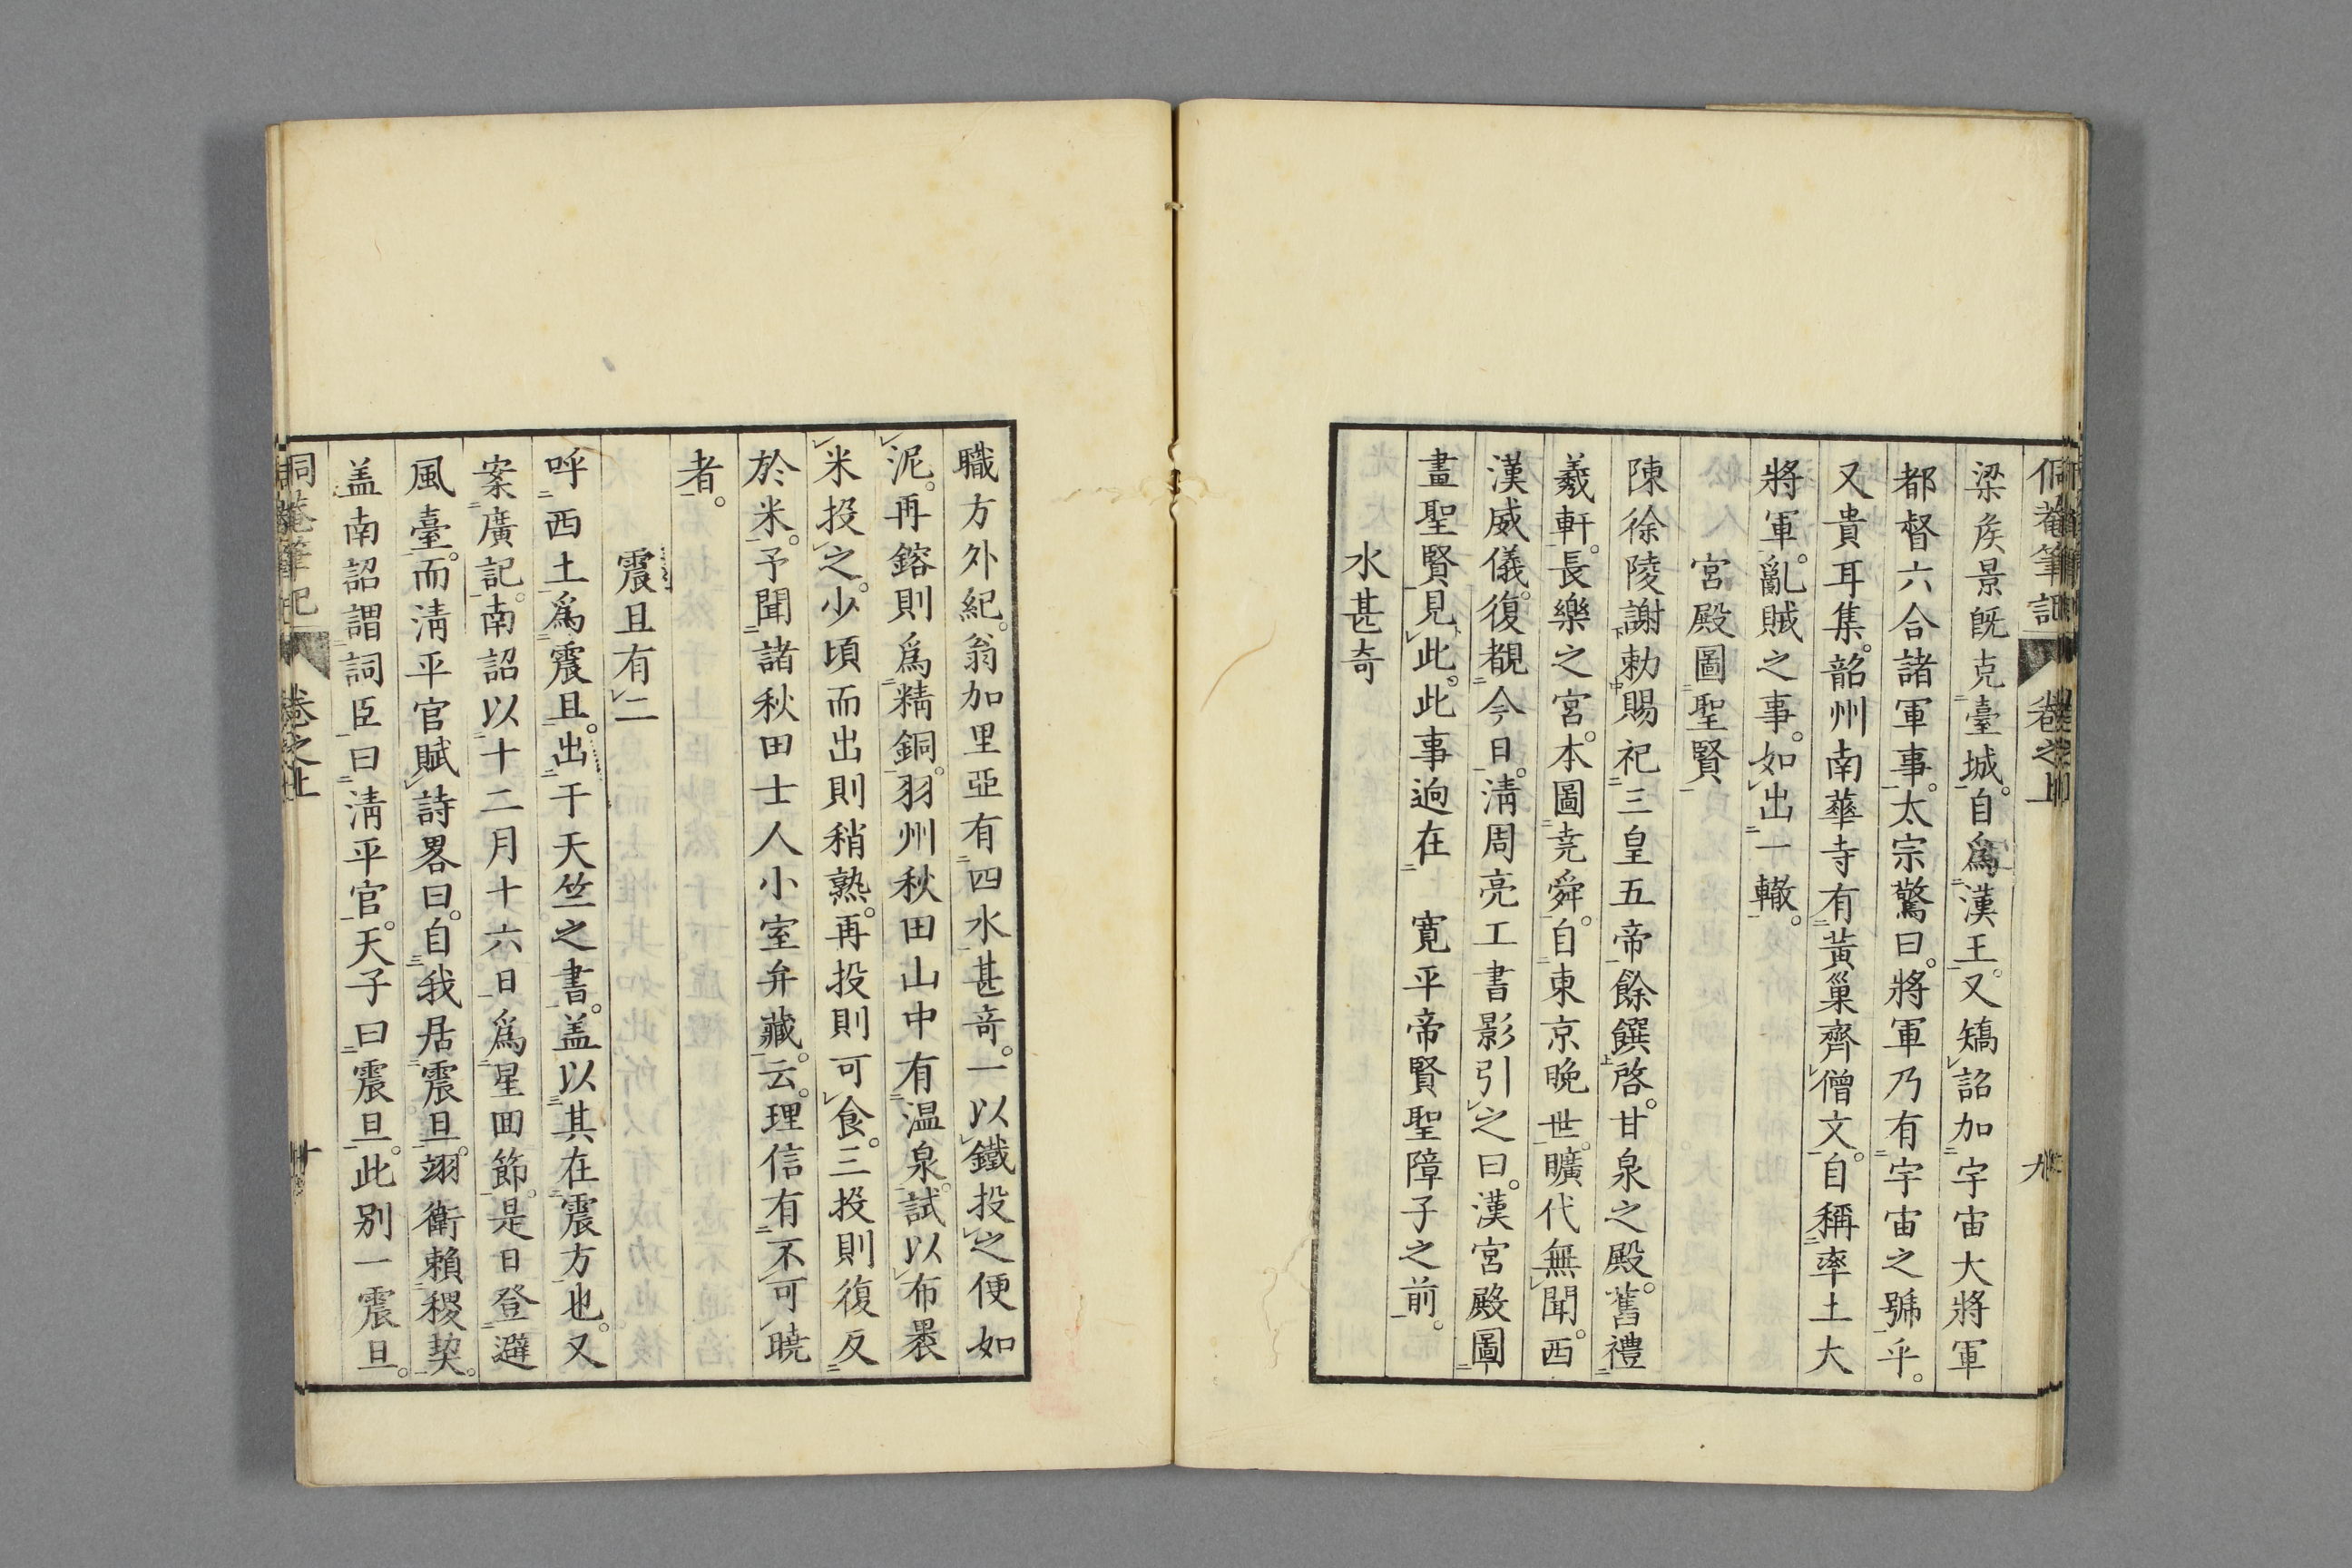 侗菴筆記 卷之上 九
梁矦景既克臺城。自爲漢王。又矯詔加宇宙大將軍
都督六合諸軍事。太宗驚曰。將軍乃有宇宙之號乎。
又貴耳集。韶州南華寺有黃巢齊僧文。自稱率土大
將軍。亂賊之事。如出一轍。
宮殿圖聖賢
陳徐陵謝勅賜祀三皇五帝餘饌啓。甘泉之殿。舊禮
羲軒。長樂之宮。本圖堯舜。自東京晚世。曠代無聞。西
漢威儀。復覩今日。淸周亮工書影引之曰。漢宮殿圖
畫聖賢見此。此事迥在 寛平帝賢聖障子之前。
水甚奇
職方外紀。翁加里亞有四水甚奇。一以鐵投之便如
泥。再鎔則爲精銅。羽州秋田山中有温泉。試以布褁
米投之。少頃而出則稍熟。再投則可食。三投則復反
於米。予聞諸秋田士人小室弁藏。云。理信有不可曉
者。
震旦有二
呼西土爲震旦。出于天竺之書。盖以其在震方也。又
案廣記。南詔以十二月十六日爲星回節。是日登避
風臺。而淸平官賦詩畧曰。自我居震旦。翊衞賴稷契。
盖南詔謂詞臣曰淸平官。天子曰震旦。此别一震旦。
侗菴筆記 卷之上 十